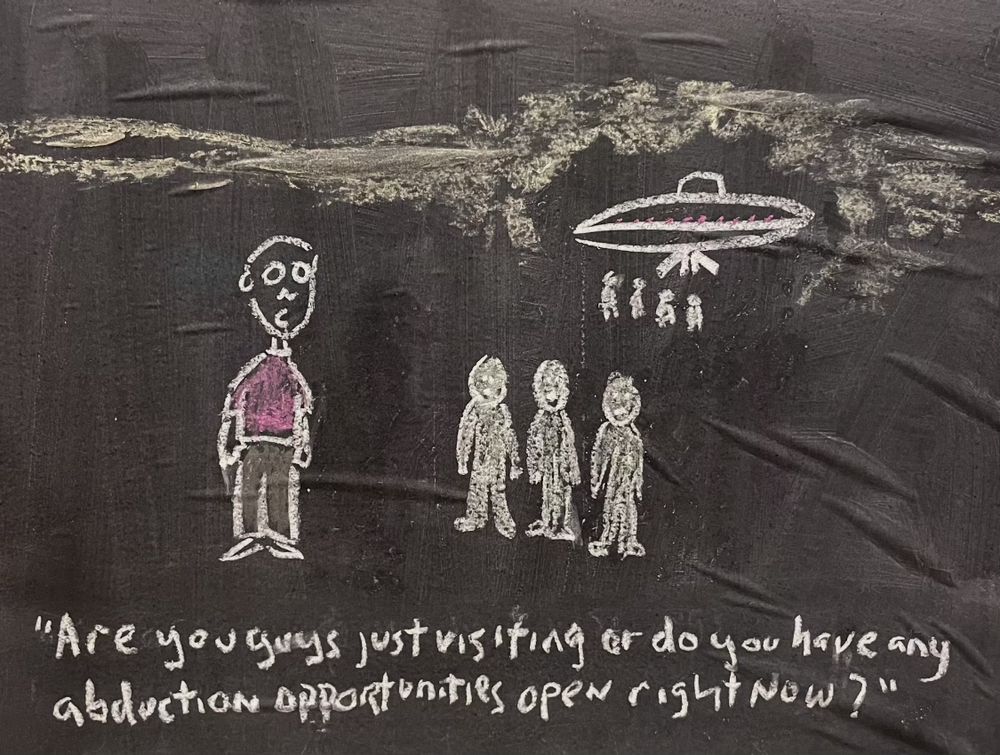 "Are you guys just visiting or do you have any
abduction opportunities open right now?"